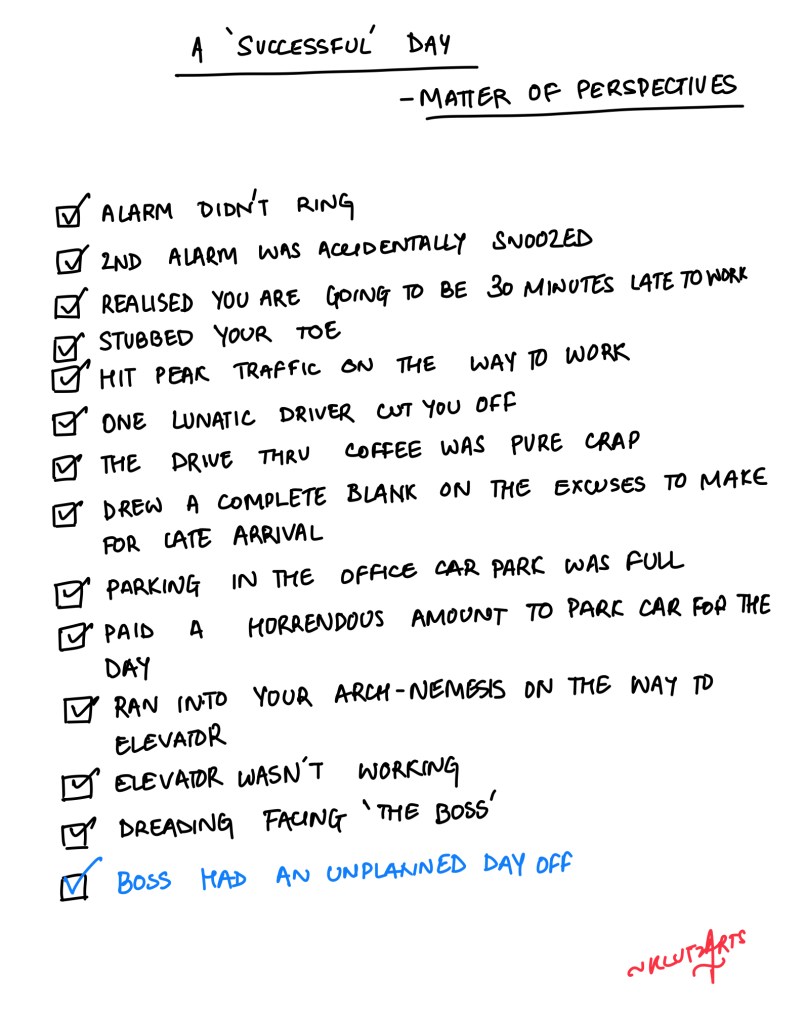 A 'SUCCESSFUL' DAY
- MATTER OF PERSPECTIVES
ALARM DIDN'T RING
2ND ALARM WAS ACCIDENTALLY SNOOZED
REALISED YOU ARE GOING TO BE 30 MINUTES LATE TO WORK
STUBBED YOUR TOE
HIT PEAK TRAFFIC ON THE WAY TO WORK
ONE LUNATIC DRIVER CUT YOU OFF
THE DRIVE THRU COFFEE WAS PURE CRAP
DREW A COMPLETE BLANK ON THE EXCUSES TO MAKE
FOR LATE ARRIVAL
PARKING IN THE OFFICE CAR PARK WAS FULL
PAID A HORRENDOUS AMOUNT TO PARK CAR FOR THE
DAY
RAN INTO YOUR ARCH-NEMESIS ON THE WAY TO
ELEVATOR
ELEVATOR WASN'T WORKING
DREADING FACING 'THE BOSS'
BOSS HAD AN UNPLANNED DAY OFF
~KLUTZARTS